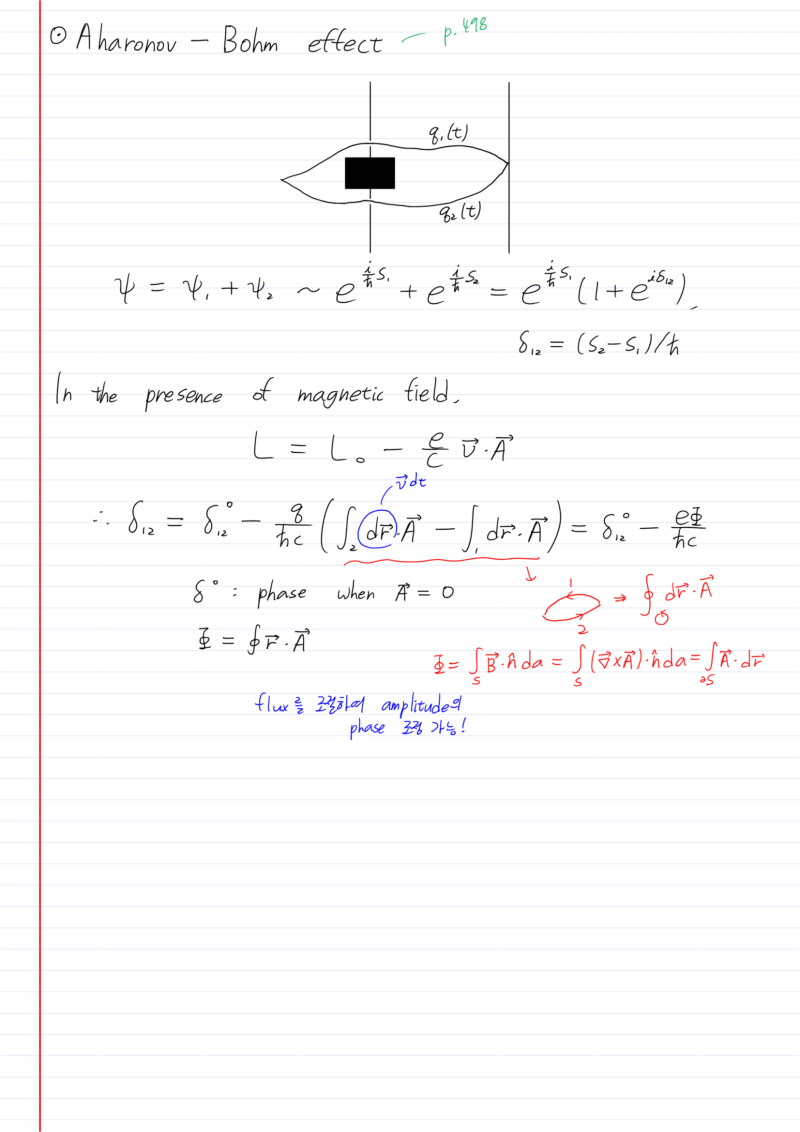 ⊙ Aharonov – Bohm effect — p.498
q₁(t)
q₂(t)
ψ = ψ₁ + ψ₂ ~ e^{\frac{i}{ħ}S₁} + e^{\frac{i}{ħ}S₂} = e^{\frac{i}{ħ}S₁}(1+e^{iδ₁₂}),
δ₁₂ = (S₂–S₁)/ħ
In the presence of magnetic field,
L = L₀ – \frac{e}{c} \vec{v}·\vec{A}
\vec{v}dt
∴ δ₁₂ = δ₁₂° – \frac{q}{ħc} (∫₂ d\vec{r}·\vec{A} – ∫₁ d\vec{r}·\vec{A}) = δ₁₂° – \frac{eΦ}{ħc}
δ° : phase when \vec{A} = 0
1 2 ⇒ ∮ d\vec{r}·\vec{A}
Φ = ∮\vec{r}·\vec{A}
Φ = ∫_S \vec{B}·\hat{n}da = ∫_S (\vec{∇}×\vec{A})·\hat{n}da = ∫_{∂S} \vec{A}·d\vec{r}
flux를 조절하여 amplitude의
phase 조절 가능!